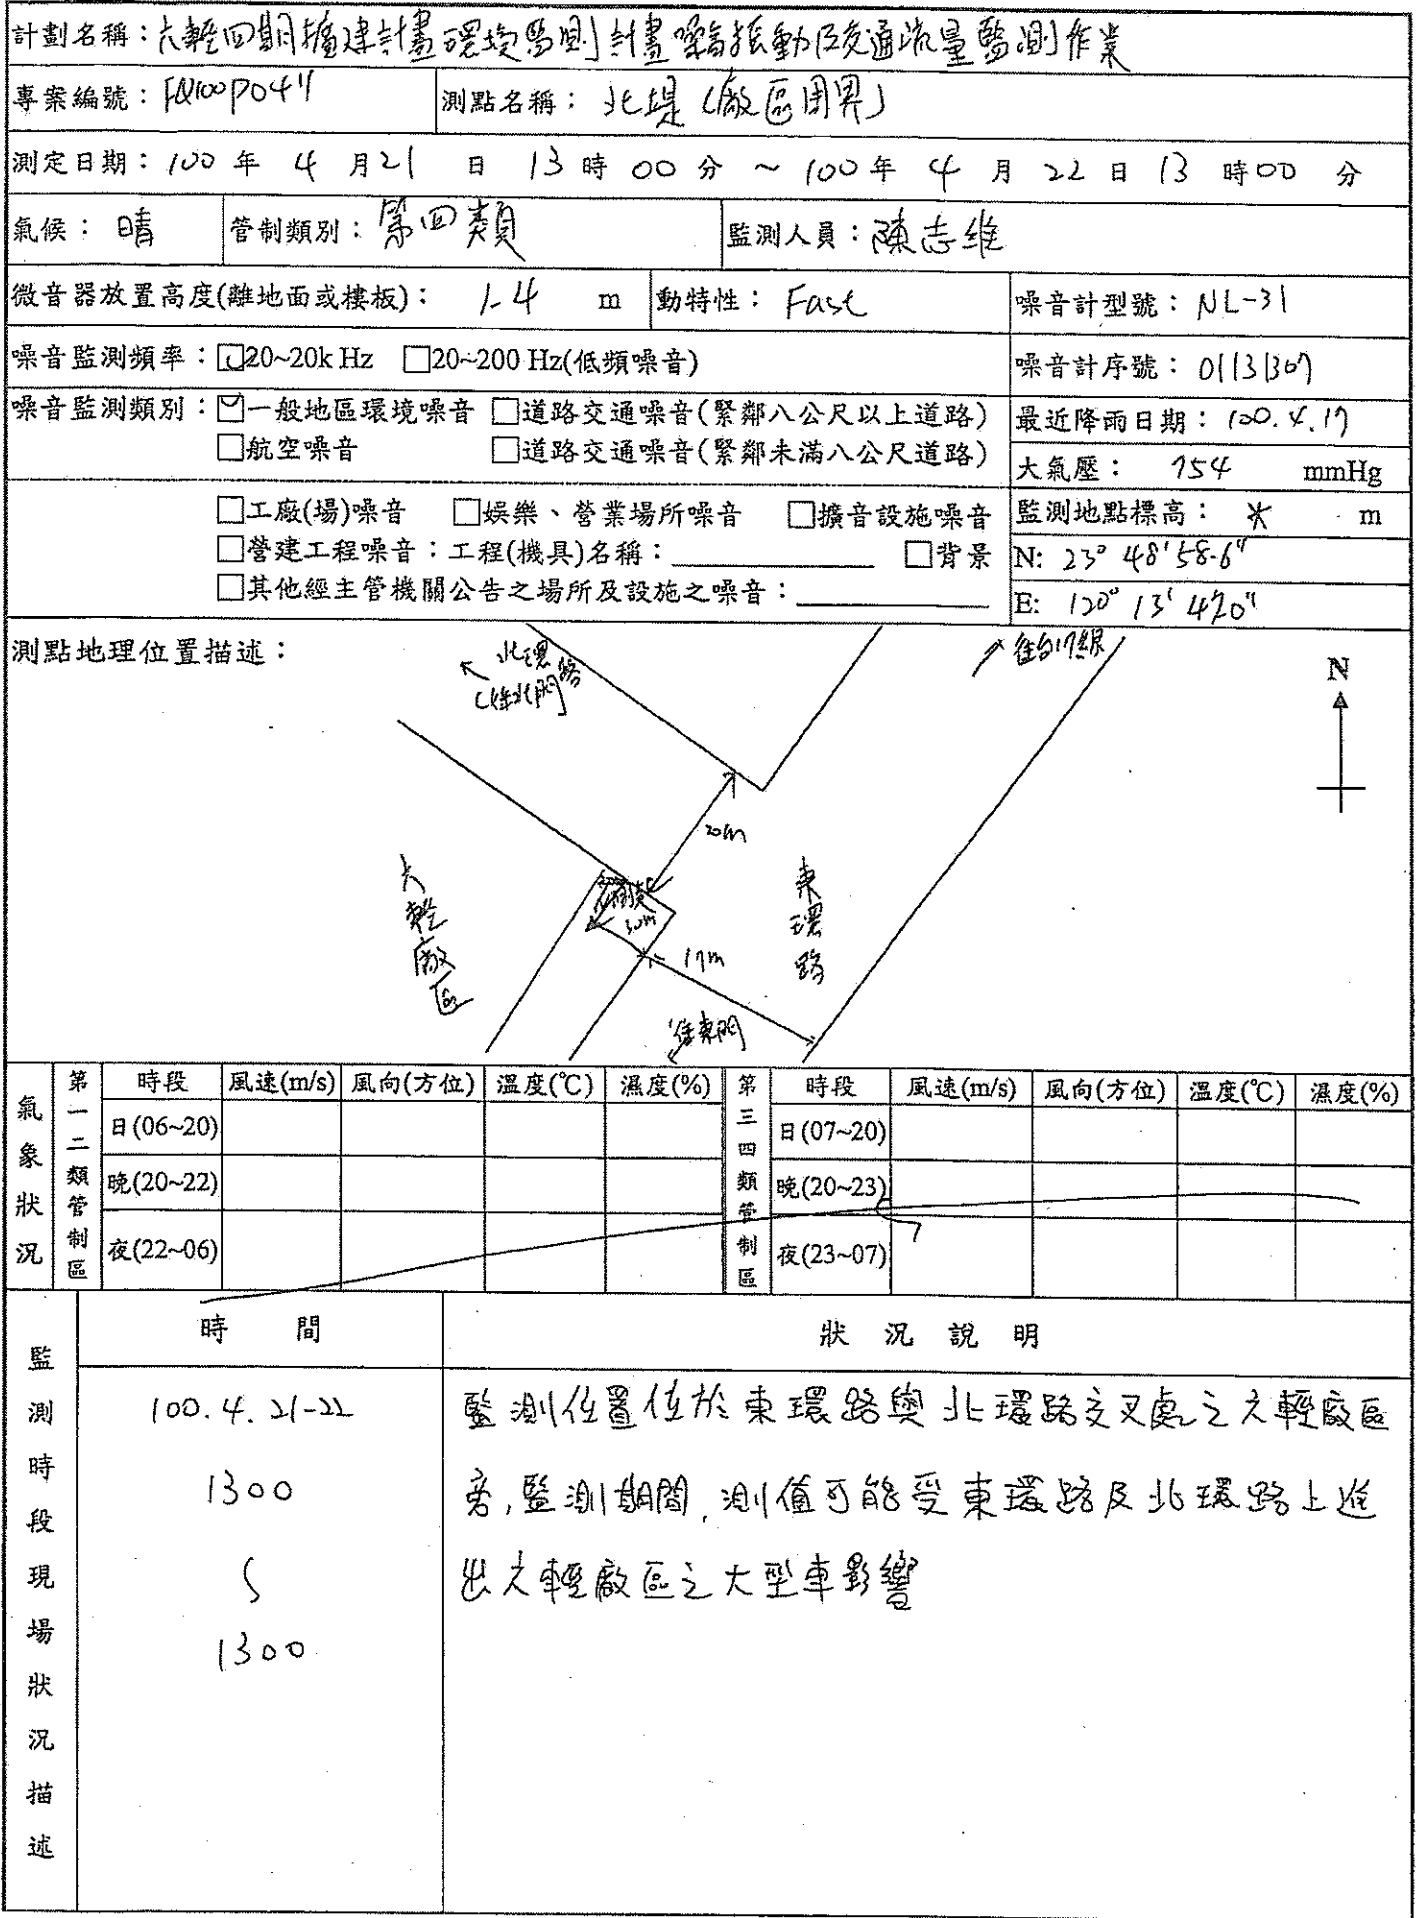 計劃名稱：六輕四期擴建計畫環境監測計畫噪音振動及交通流量監測作業
專案編號： 測點名稱：北堤(廠區周界)
測定日期：100 年 4 月 21 日 13 時 00 分 ～ 100 年 4 月 22 日 13 時 00 分
氣候：晴 管制類別：第四類 監測人員：陳志維
微音器放置高度(離地面或樓板)： 1.4 m 動特性： Fast 噪音計型號：NL-31
噪音監測頻率：☑20~20k Hz □20~200 Hz(低頻噪音) 噪音計序號：01131307
噪音監測類別：☑一般地區環境噪音 □道路交通噪音(緊鄰八公尺以上道路) 最近降雨日期：100.4.17
□航空噪音 □道路交通噪音(緊鄰未滿八公尺道路) 大氣壓： 754 mmHg
□工廠(場)噪音 □娛樂、營業場所噪音 □擴音設施噪音 監測地點標高： * m
□營建工程噪音：工程(機具)名稱： □背景 N: 23° 48' 58.6"
□其他經主管機關公告之場所及設施之噪音： E: 120° 13' 47.0"
測點地理位置描述：
北環路
(往北門)
往台17線
N
20m
六輕廠區
30m
東環路
17m
往東門
氣象狀況
第一二類管制區 時段 風速(m/s) 風向(方位) 溫度(℃) 濕度(%) 第三四類管制區 時段 風速(m/s) 風向(方位) 溫度(℃) 濕度(%)
日(06~20) 日(07~20)
晚(20~22) 晚(20~23)
夜(22~06) 夜(23~07)
監測時段現場狀況描述
時 間 狀 況 說 明
100.4.21-22 監測位置位於東環路與北環路交叉處之六輕廠區
1300 旁,監測期間,測值可能受東環路及北環路上進
∫ 出六輕廠區之大型車影響
1300